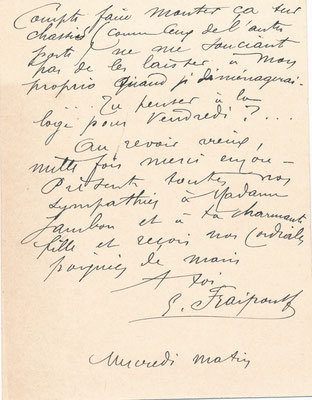 Compte faire monter ça sur
chassis (comme ceux de l'autre
porte) ne me souciant
pas de les laisser à mon
proprio quand je déménagerai.
... Tu penses à la
loge pour Vendredi ? ...
Au revoir vieux,
mille fois merci encore —
Présente toutes nos
sympathies à Madame
Jambon et à ta charmante
fille et reçois nos cordiales
poignées de mains
A toi
G. Fraipont
Mercredi matin